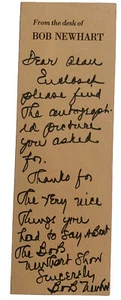 From the desk of
BOB NEWHART
Dear Dean
Enclosed
please find
The autograph-
ed picture
you asked
for.
Thanks for
The very nice
Things you
had to say About
The Bob
Newhart Show
Sincerely
Bob Newhart